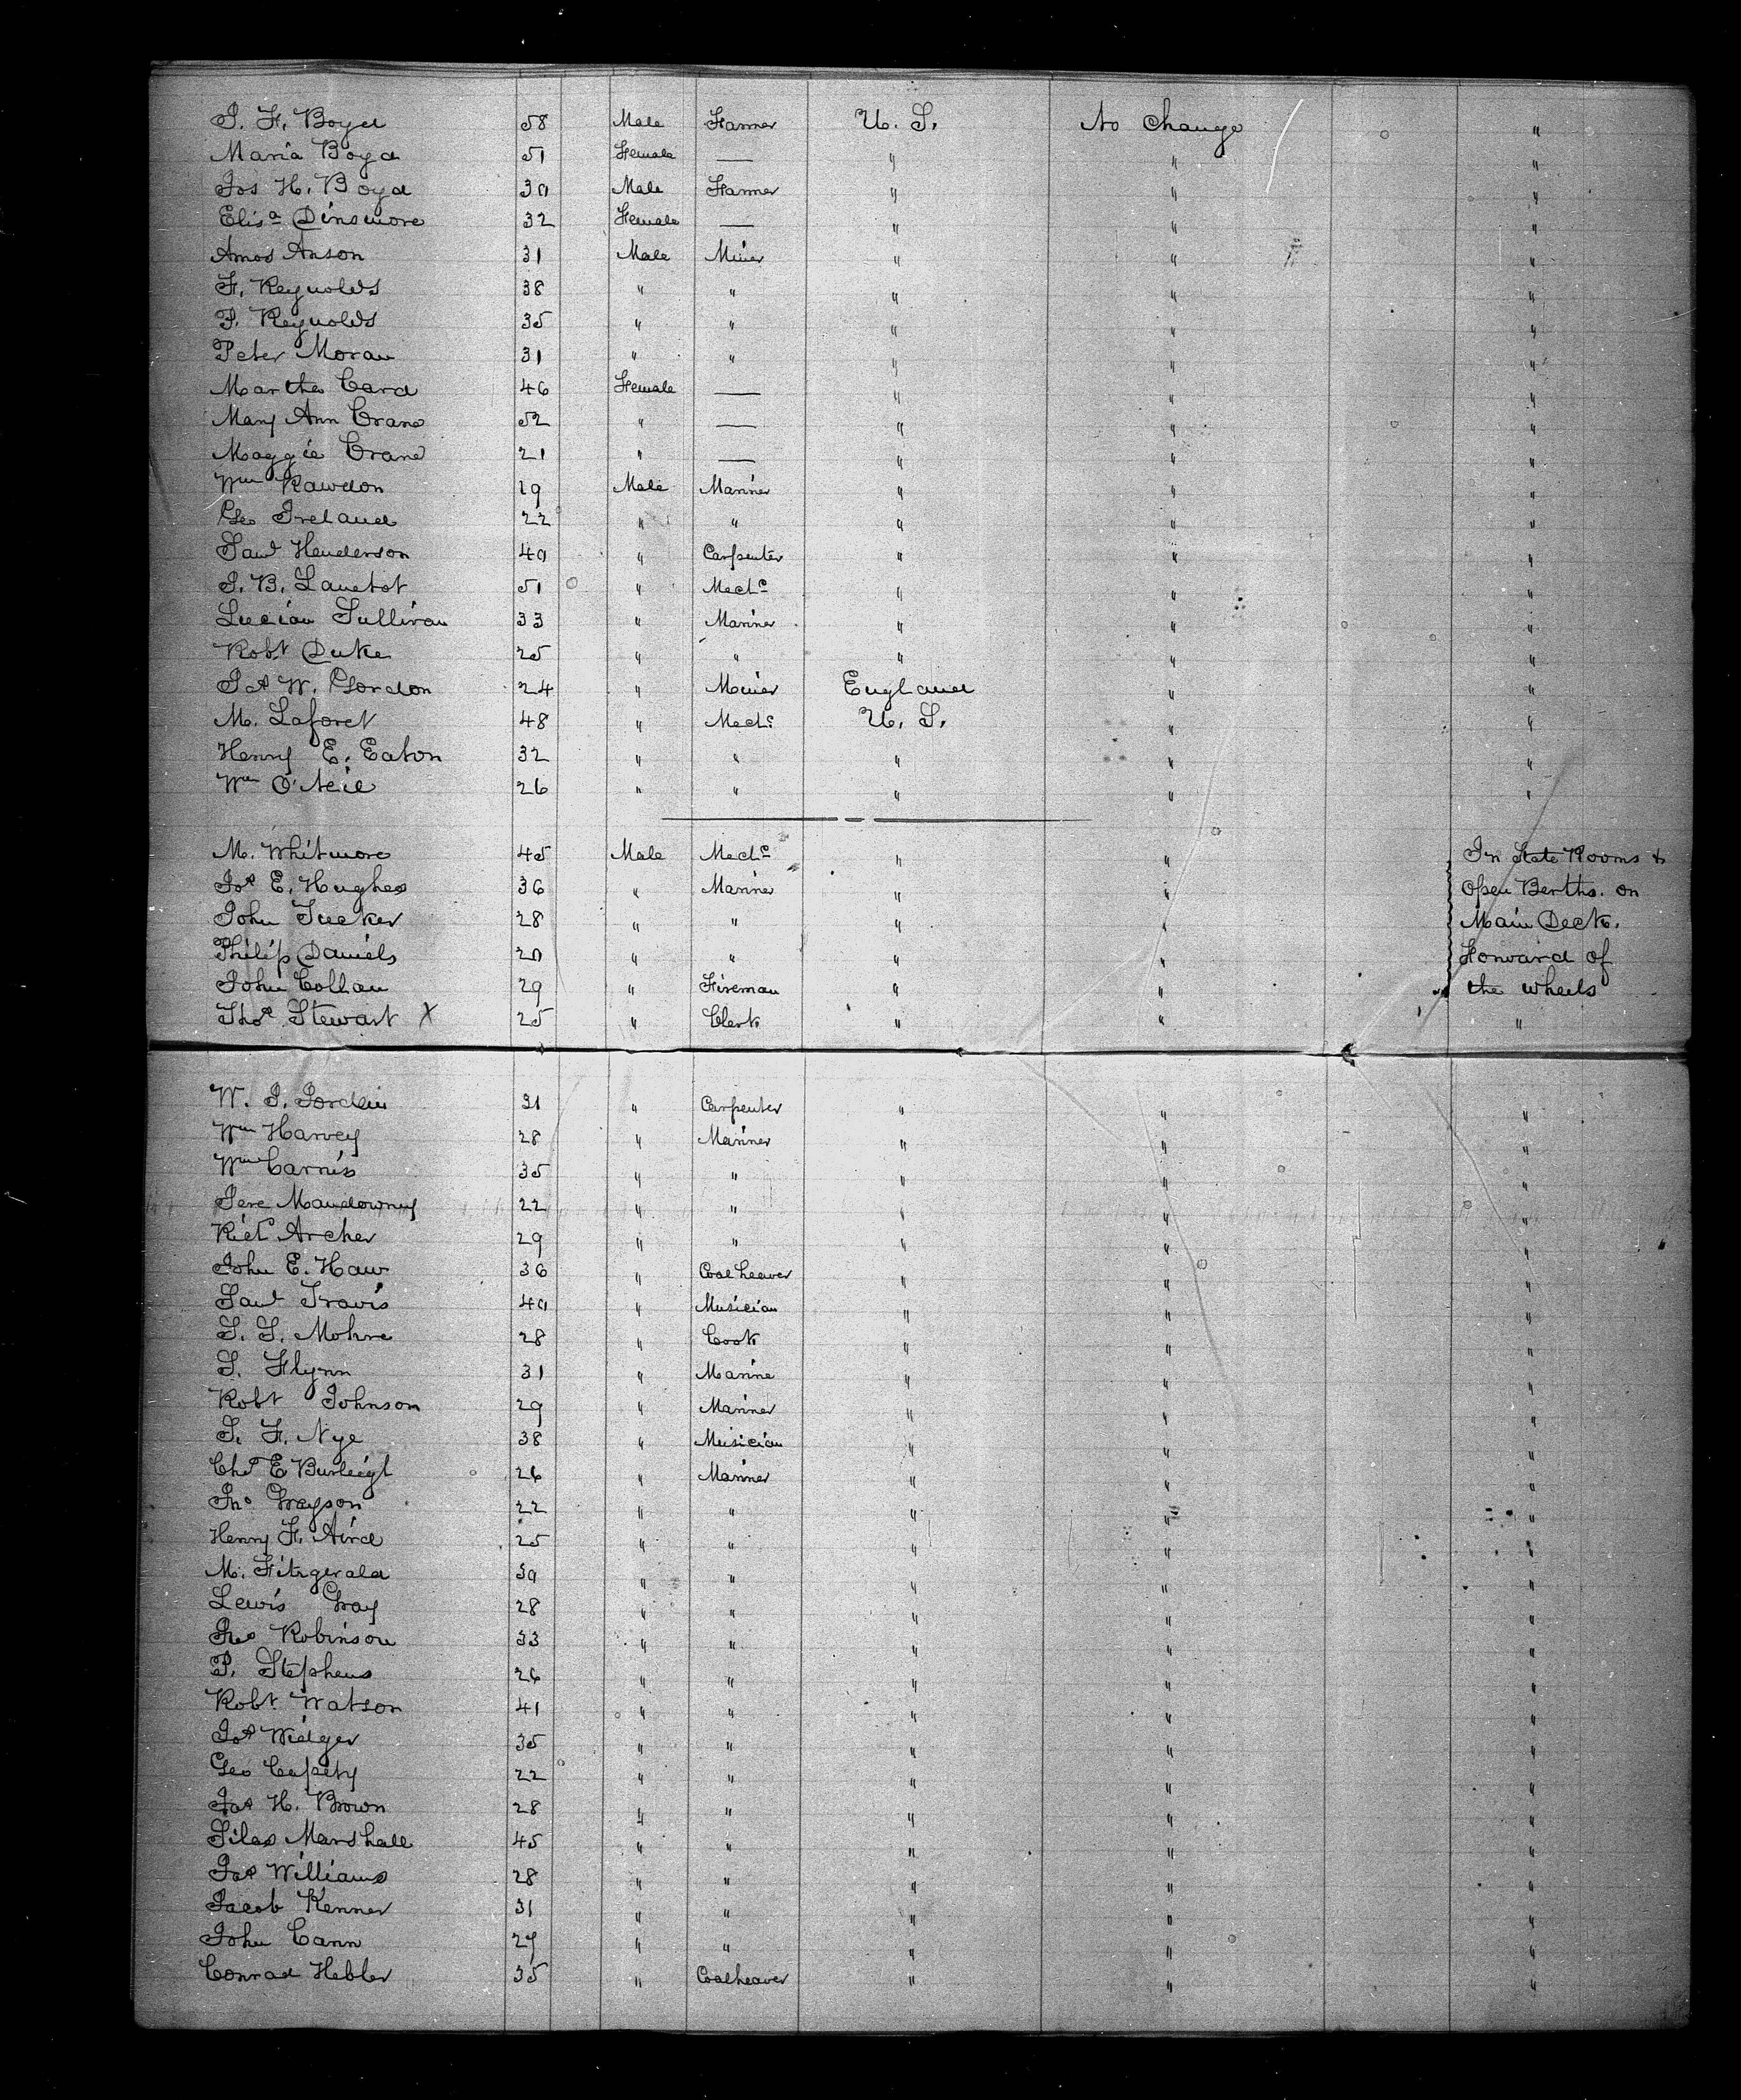 J. F. Boyd 58 Male Farmer U. S. No Change "
Maria Boyd 51 Female — " " "
Jos H. Boyd 30 Male Farmer " " "
Elisa Dinsmore 32 Female — " " "
Amos Anson 31 Male Miner " " "
F. Reynolds 38 " " " " "
P. Reynolds 35 " " " " "
Peter Moran 31 " " " " "
Martha Card 46 Female — " " "
Mary Ann Crane 52 " — " " "
Maggie Crane 21 " — " " "
Wm Rawdon 29 Male Mariner " " "
Geo Ireland 22 " " " " "
Saml Henderson 40 " Carpenter " " "
J. B. 51 " Mechc " " "
Lucian Sullivan 33 " Mariner " " "
Robt Duke 25 " " " " "
Jas W. Gordon 24 " Miner England " "
M. Laforet 48 " Mechc U. S. " "
Henry E. Eaton 32 " " " " "
Wm O'Neil 26 " " " " "
M. Whitmore 45 Male Mechc " " In State Rooms &
Jas E. Hughes 36 " Mariner " " Open Berths. on
John Tucker 28 " " " " Main Deck.
Philip Daniels 20 " " " " Forward of
John Collan 29 " Fireman " " the wheels
Thos Stewart X 25 " Clerk " " "
W. J. Jordan 31 " Carpenter " " "
Wm Harvey 28 " Mariner " " "
Wm Carnis 35 " " " " "
Jere Maudowney 22 " " " " "
Richd Archer 29 " " " " "
John E. Haw 36 " Coal heaver " " "
Saml Travis 40 " Musician " " "
S. S. Mohre 28 " Cook " " "
S. Flynn 31 " Marine " " "
Robt Johnson 29 " Mariner " " "
S. F. Nye 38 " Musician " " "
Chs E Burleigh 26 " Mariner " " "
Jno Grayson 22 " " " " "
Henry F. Aird 25 " " " " "
M. Fitzgerald 30 " " " " "
Lewis Gray 28 " " " " "
Jno Robinson 33 " " " " "
P. Stephens 26 " " " " "
Robt Watson 41 " " " " "
Jas Widger 35 " " " " "
Geo 22 " " " " "
Jas H. Brown 28 " " " " "
Silas Marshall 45 " " " " "
Jas Williams 28 " " " " "
Jacob Kenner 31 " " " " "
John Cann 27 " " " " "
Conrad Hebler 35 " Coalheaver " " "